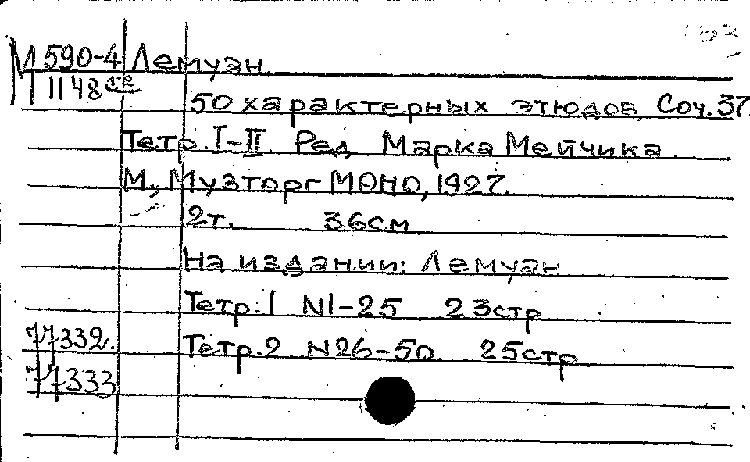 М 590-4 Лемуан
1148
50 характерных этюдов, Соч. 37.
Тетр. I-II. Ред. Марка Мейчика.
М., Музторг МОНО, 1927.
2т. 36см
На издании: Лемуан
Тетр. 1 N1-25 23стр
77332. Тетр. 2 N26-50. 25стр
77333